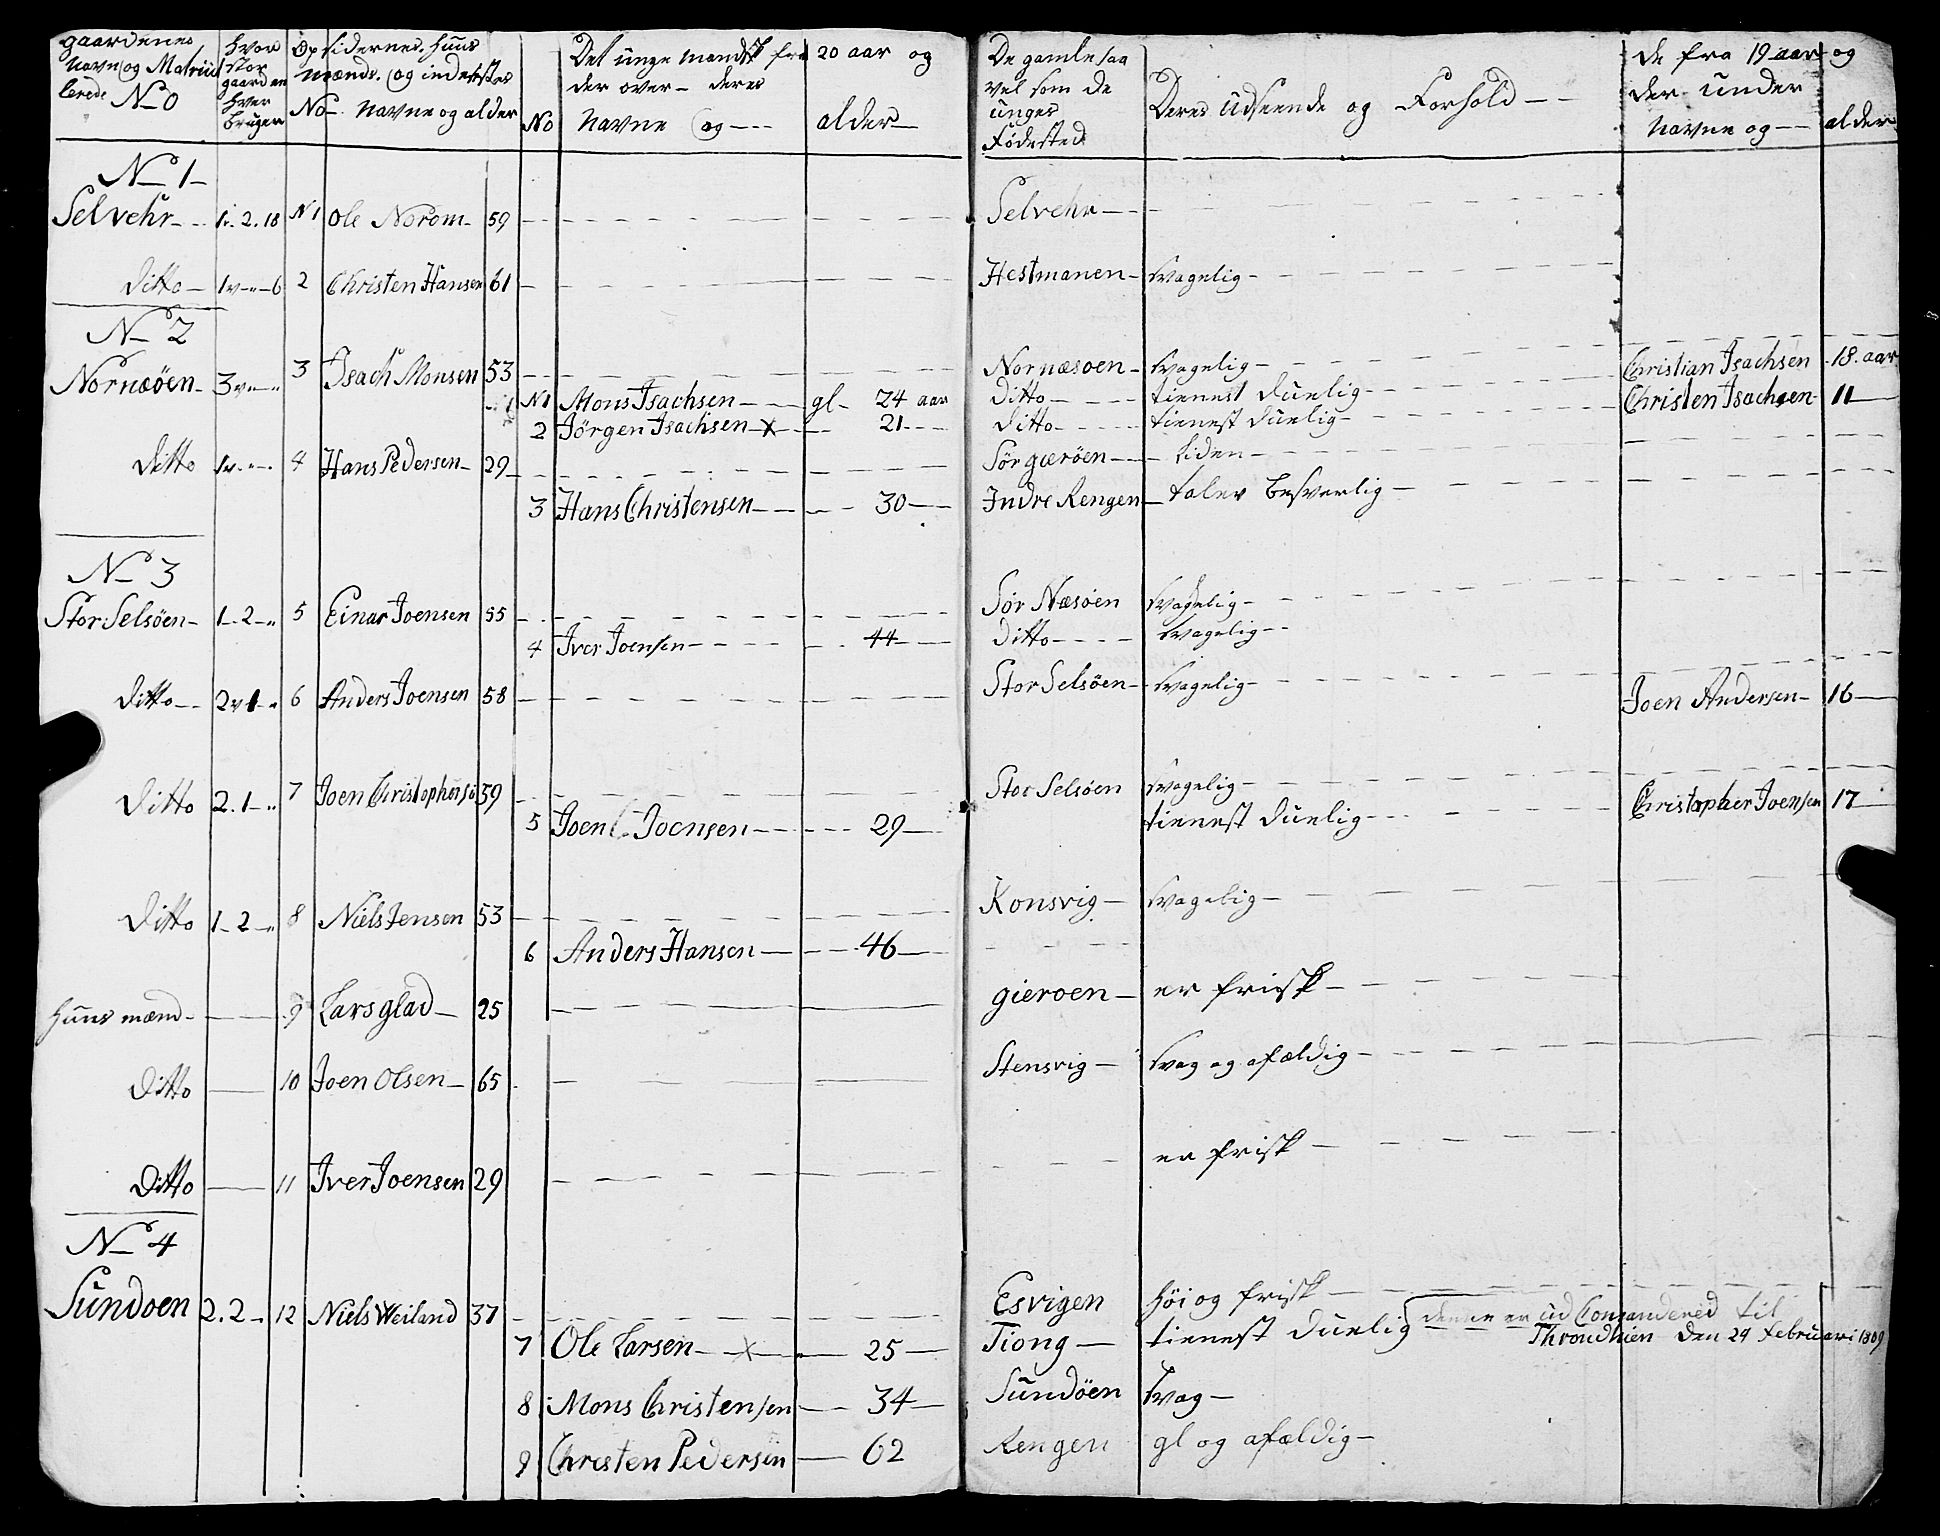 gaardenes navn og Matricu lerede No | hvor stor gaard en hver bruger | Opsidernes, huus mænds, og inderstes No navne og alder | No | Det unge mandsk fra 20 aar og der over - deres navne og --- alder | De gamle saa vel som de unges Fødested | Deres Udseende og Forhold -- | de fra 19 aar og der under navne og -- alder
No 1
Selvehr | 1. 2. 18 | N1 | Ole Norom | 59 | Selvehr
Ditto | 1 v - 6 | 2 | Christen Hansen | 61 | Hestmanen | svagelig
No 2
Nornæöen | 3 v | 3 | Isach Monsen | 53 | Nornæsoen | svagelig | Christian Isachsen | 18 aar
N1 | Mons Isachsen | gl - 24 aar | Ditto | tienest duelig | Christen Isachsen | 11
2 | Jörgen Isachsen x | 21 | Ditto | tienest duelig
Ditto | 1 v | 4 | Hans Pedersen | 29 | Sör gieröen | liden
3 | Hans Christensen | 30 | Indre Rengen | taler besverlig
No 3
Stor Selsöen | 1 - 2 | 5 | Einar Joensen | 55 | Sör Næsöen | svagelig
4 | Iver Joensen | 44 | Ditto | svagelig
Ditto | 2 v 1 | 6 | Anders Joensen | 58 | Stor Selsöen | svagelig | Joen Andersen | 16
Ditto | 2. 1 | 7 | Joen Christophersen | 59 | Stor Selsöen | svagelig | Christopher Joensen | 17
5 | Joen Joensen | 29 | tienest duelig
Ditto | 1 - 2 | 8 | Niels Jensen | 53 | Konsvig | svagelig
6 | Anders Hansen | 46
Huus mænd | 9 | Lars glad | 25 | gieroen | er frisk
Ditto | 10 | Joen Olsen | 65 | Stensvig | svag og afældig
Ditto | 11 | Iver Joensen | 29 | er frisk
No 4
Sundoen | 2. 2 | 12 | Niels Weiland | 37 | Esvigen | höi og frisk
7 | Ole Larsen x | 25 | Tiong | tienest duelig | denne er ud Comandered til Throndhien den 24 februari 1809
8 | Mons Christensen | 34 | Sundöen | svag
9 | Christen Pedersen | 62 | Rengen | gl og afældig